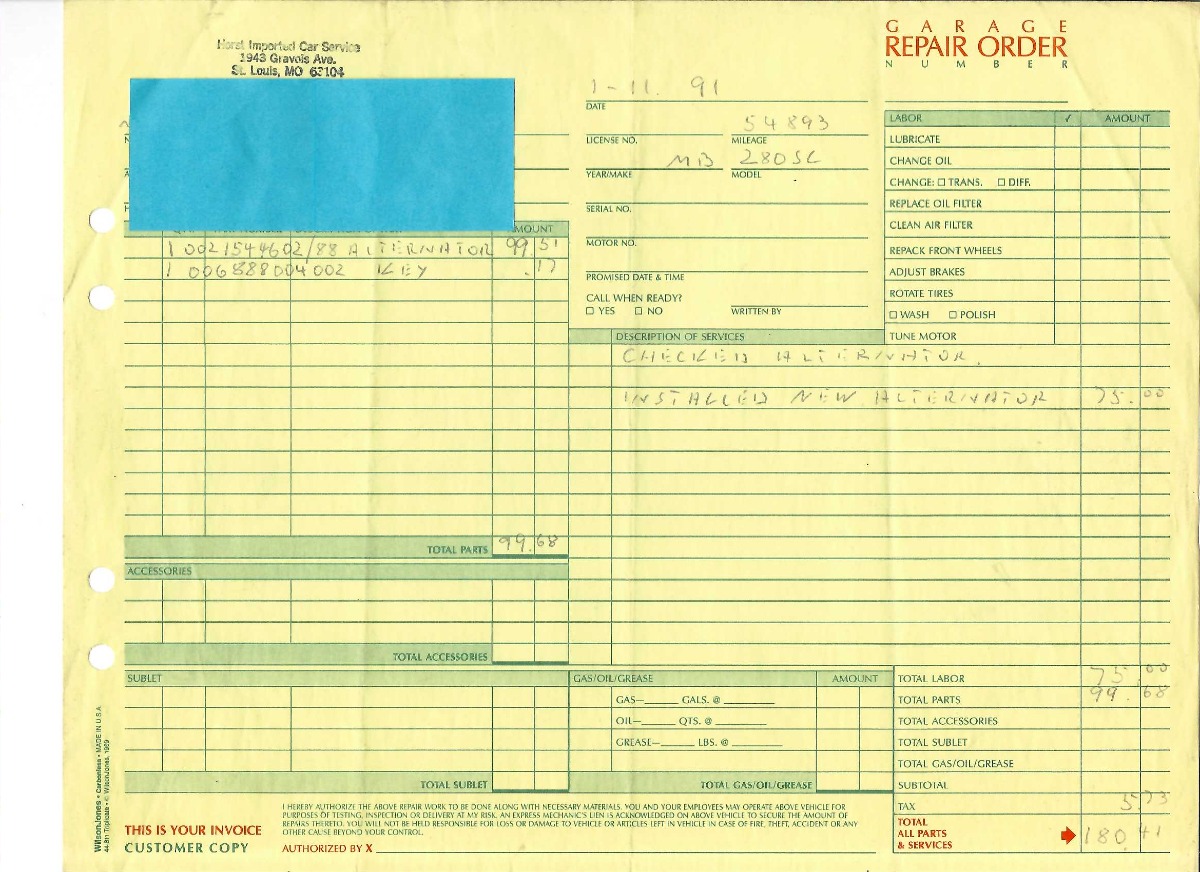 Horst Imported Car Service
1943 Gravois Ave.
St. Louis, MO 63104
GARAGE
REPAIR ORDER
NUMBER
1-11. 91
DATE
LICENSE NO.
54893
MILEAGE
MB
YEAR/MAKE
280SL
MODEL
SERIAL NO.
MOTOR NO.
PROMISED DATE & TIME
CALL WHEN READY?
☐ YES ☐ NO
WRITTEN BY
LABOR ✓ AMOUNT
LUBRICATE
CHANGE OIL
CHANGE: ☐ TRANS. ☐ DIFF.
REPLACE OIL FILTER
CLEAN AIR FILTER
REPACK FRONT WHEELS
ADJUST BRAKES
ROTATE TIRES
☐ WASH ☐ POLISH
TUNE MOTOR
AMOUNT
1 0021544602/88 ALTERNATOR 99.51
1 006888004002 KEY .17
TOTAL PARTS 99.68
ACCESSORIES
TOTAL ACCESSORIES
DESCRIPTION OF SERVICES
CHECKED ALTERNATOR.
INSTALLED NEW ALTERNATOR 75.00
SUBLET
TOTAL SUBLET
GAS/OIL/GREASE AMOUNT
GAS—______ GALS. @ ________
OIL—______ QTS. @ ________
GREASE—______ LBS. @ ________
TOTAL GAS/OIL/GREASE
TOTAL LABOR 75.00
TOTAL PARTS 99.68
TOTAL ACCESSORIES
TOTAL SUBLET
TOTAL GAS/OIL/GREASE
SUBTOTAL
TAX 5 73
TOTAL
ALL PARTS
& SERVICES 180.41
I HEREBY AUTHORIZE THE ABOVE REPAIR WORK TO BE DONE ALONG WITH NECESSARY MATERIALS. YOU AND YOUR EMPLOYEES MAY OPERATE ABOVE VEHICLE FOR
PURPOSES OF TESTING, INSPECTION OR DELIVERY AT MY RISK. AN EXPRESS MECHANIC'S LIEN IS ACKNOWLEDGED ON ABOVE VEHICLE TO SECURE THE AMOUNT OF
REPAIRS THERETO. YOU WILL NOT BE HELD RESPONSIBLE FOR LOSS OR DAMAGE TO VEHICLE OR ARTICLES LEFT IN VEHICLE IN CASE OF FIRE, THEFT, ACCIDENT OR ANY
OTHER CAUSE BEYOND YOUR CONTROL.
AUTHORIZED BY X
THIS IS YOUR INVOICE
CUSTOMER COPY
WilsonJones • Carbonless • MADE IN U.S.A
Triplicate • © WilsonJones, 1989